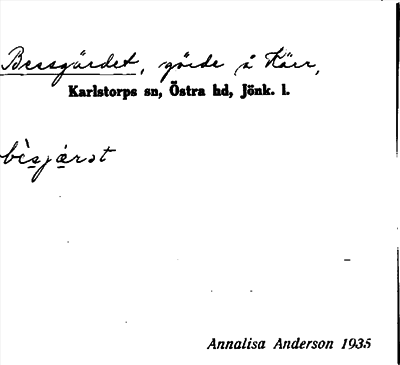 Bessgärdet, gärde å Kärr,
Karlstorps sn, Östra hd, Jönk. l.
bèsjæ̀rət
Annalisa Anderson 1935